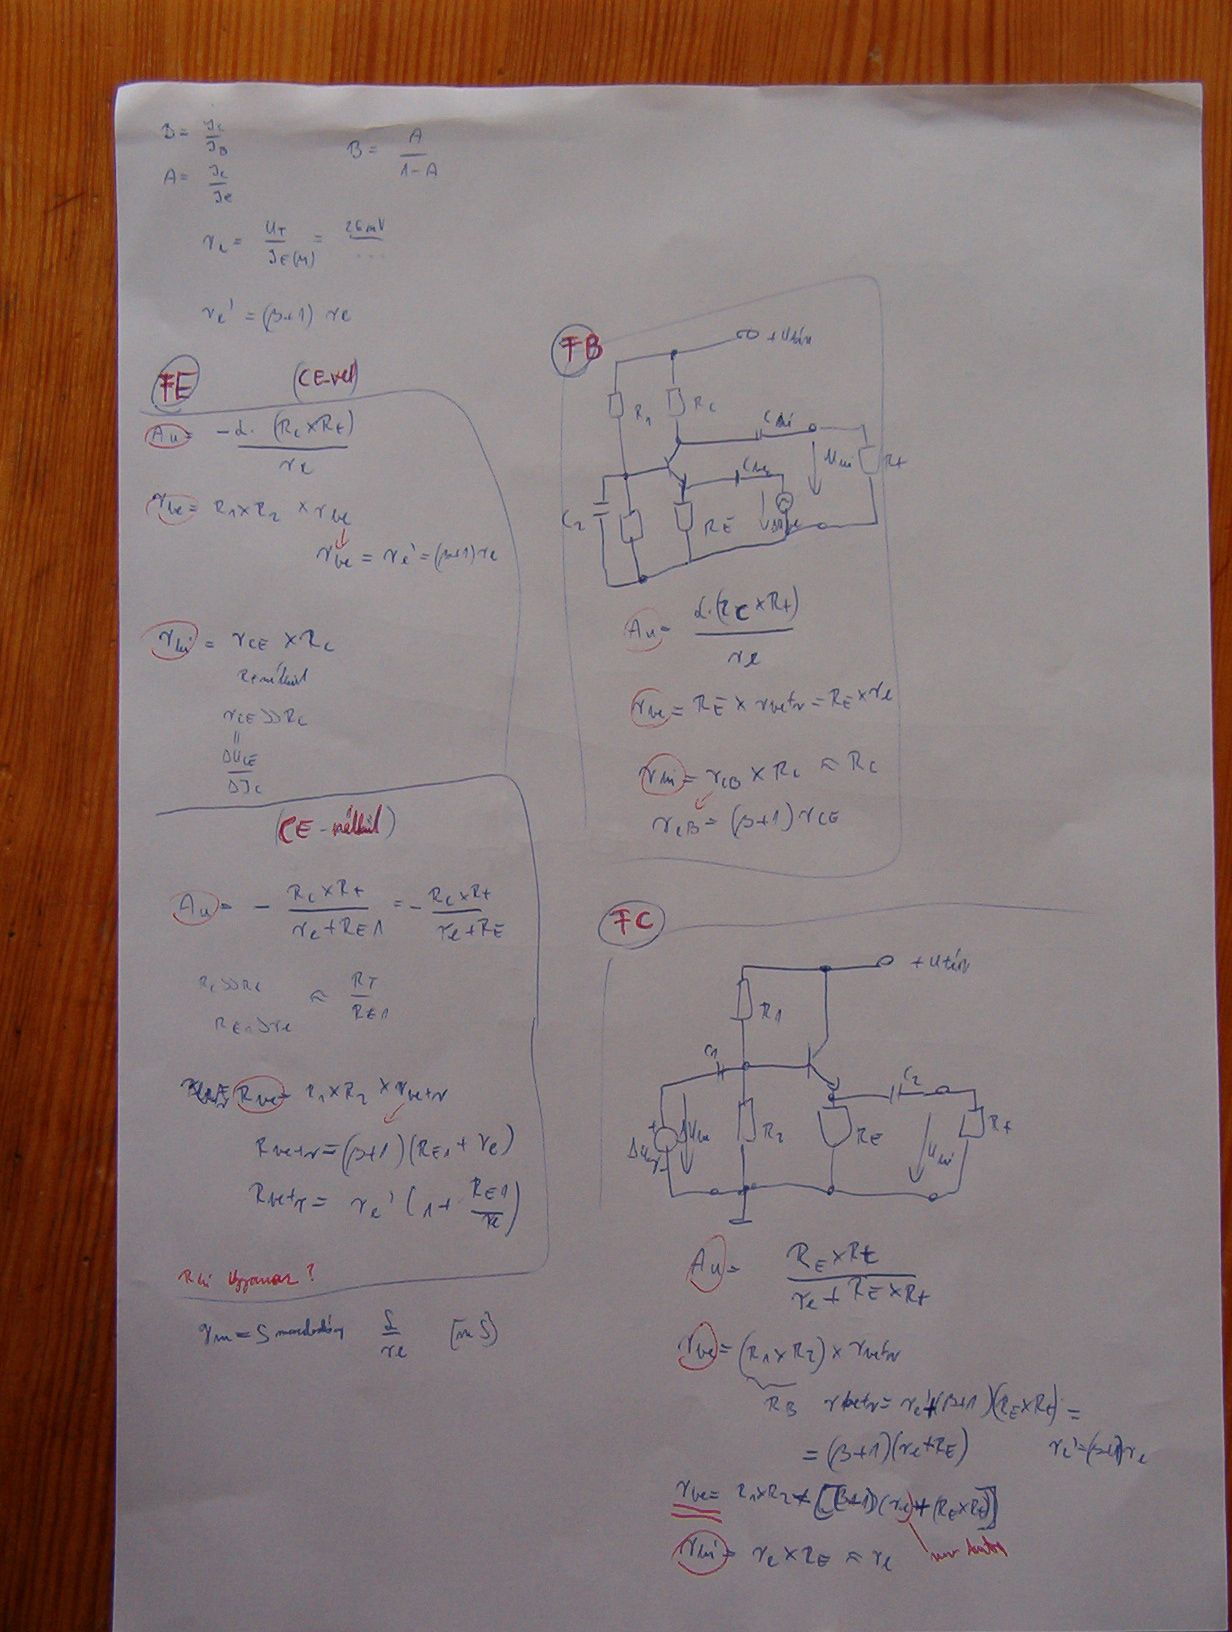 B = Ic/IB
B = A/1-A
A = Ic/Ie
re = UT/IE(M) = 26mV/...
re' = (β+1) re
FE (CE-vel)
Au = -α·(Rc×Rt)/re
rbe = R1×R2 × rbe
rbe = re' = (β+1)re
rki = rCE × Rc
Rt nélkül
rCE >> Rc
=
ΔUCE/ΔIc
(CE-nélkül)
Au = - Rc×Rt/re+RE1 = - Rc×Rt/re+RE
RE1 >> re ≈ RT/RE1
Rbe = R1×R2 × rbetr
Rbetr = (β+1)(RE1+re)
Rbetr = re'(1+ RE1/re)
Rki Ugyanaz?
gm = S meredekség /re [mS]
FB
+Utáp
R1 Rc
Cki
Uki Rt
C2 RE
Au = α·(Rc×Rt)/re
rbe = RE × rbetr = RE × re
rki = rCB × Rc ≈ Rc
rCB = (β+1) rCE
FC
+Utáp
R1
C1
C2
R2 RE Rt
Ube Uki
Au = RE×Rt/re+RE×Rt
rbe = (R1×R2) × rbetr
RB rbetr = re'+(β+1)(RE×Rt) =
= (β+1)(re+RE) re' = (β+1)re
rbe = R1×R2× [(β+1)(re)+(RE×Rt)]
rki = re × RE ≈ re